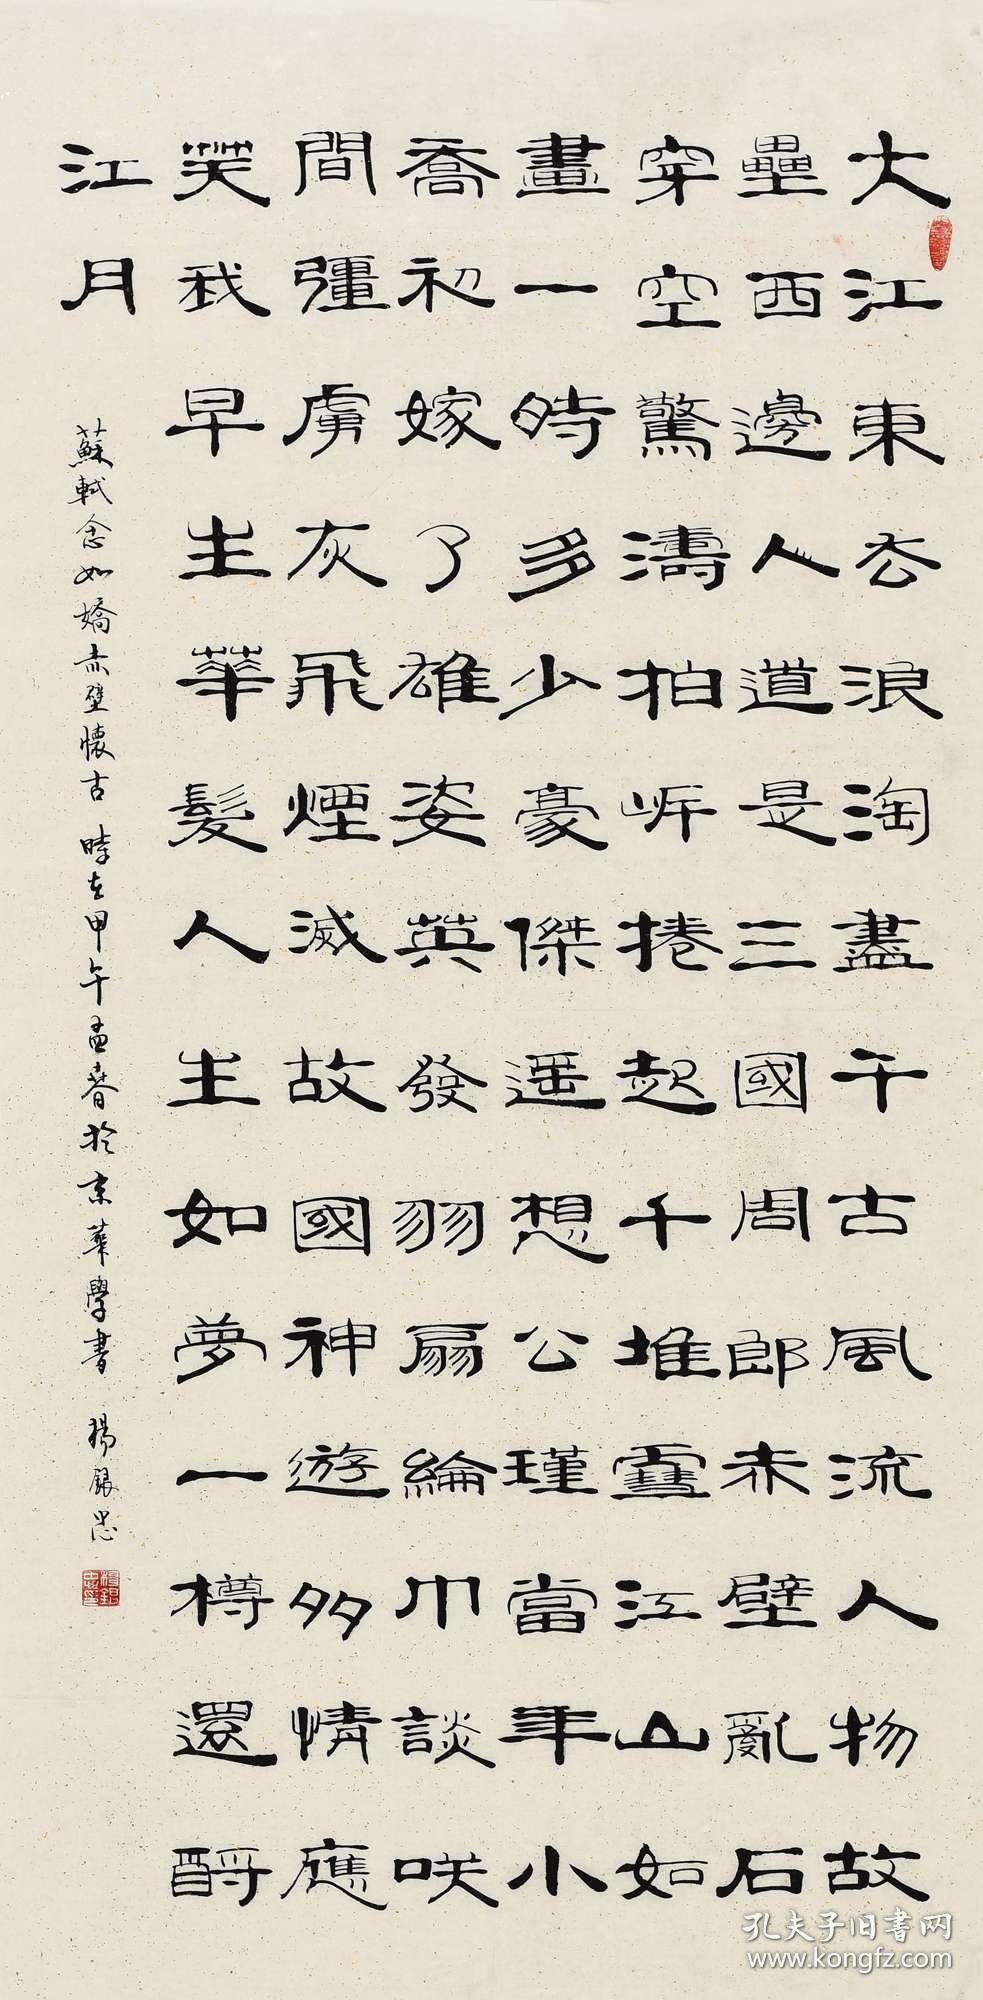 大江東去浪淘盡千古風流人物故
壘西邊人道是三國周郎赤壁亂石
穿空驚濤拍岸捲起千堆雪江山如
畫一時多少豪傑遥想公瑾當年小
喬初嫁了雄姿英發羽扇綸巾談咲
間彊虜灰飛煙滅故國神遊多情應
笑我早生華髮人生如夢一樽還酹
江月
蘇軾念如嬌赤壁懷古 時在甲午孟春於京華學書 楊銀忠
楊銀忠印
孔夫子旧书网
www.kongfz.com